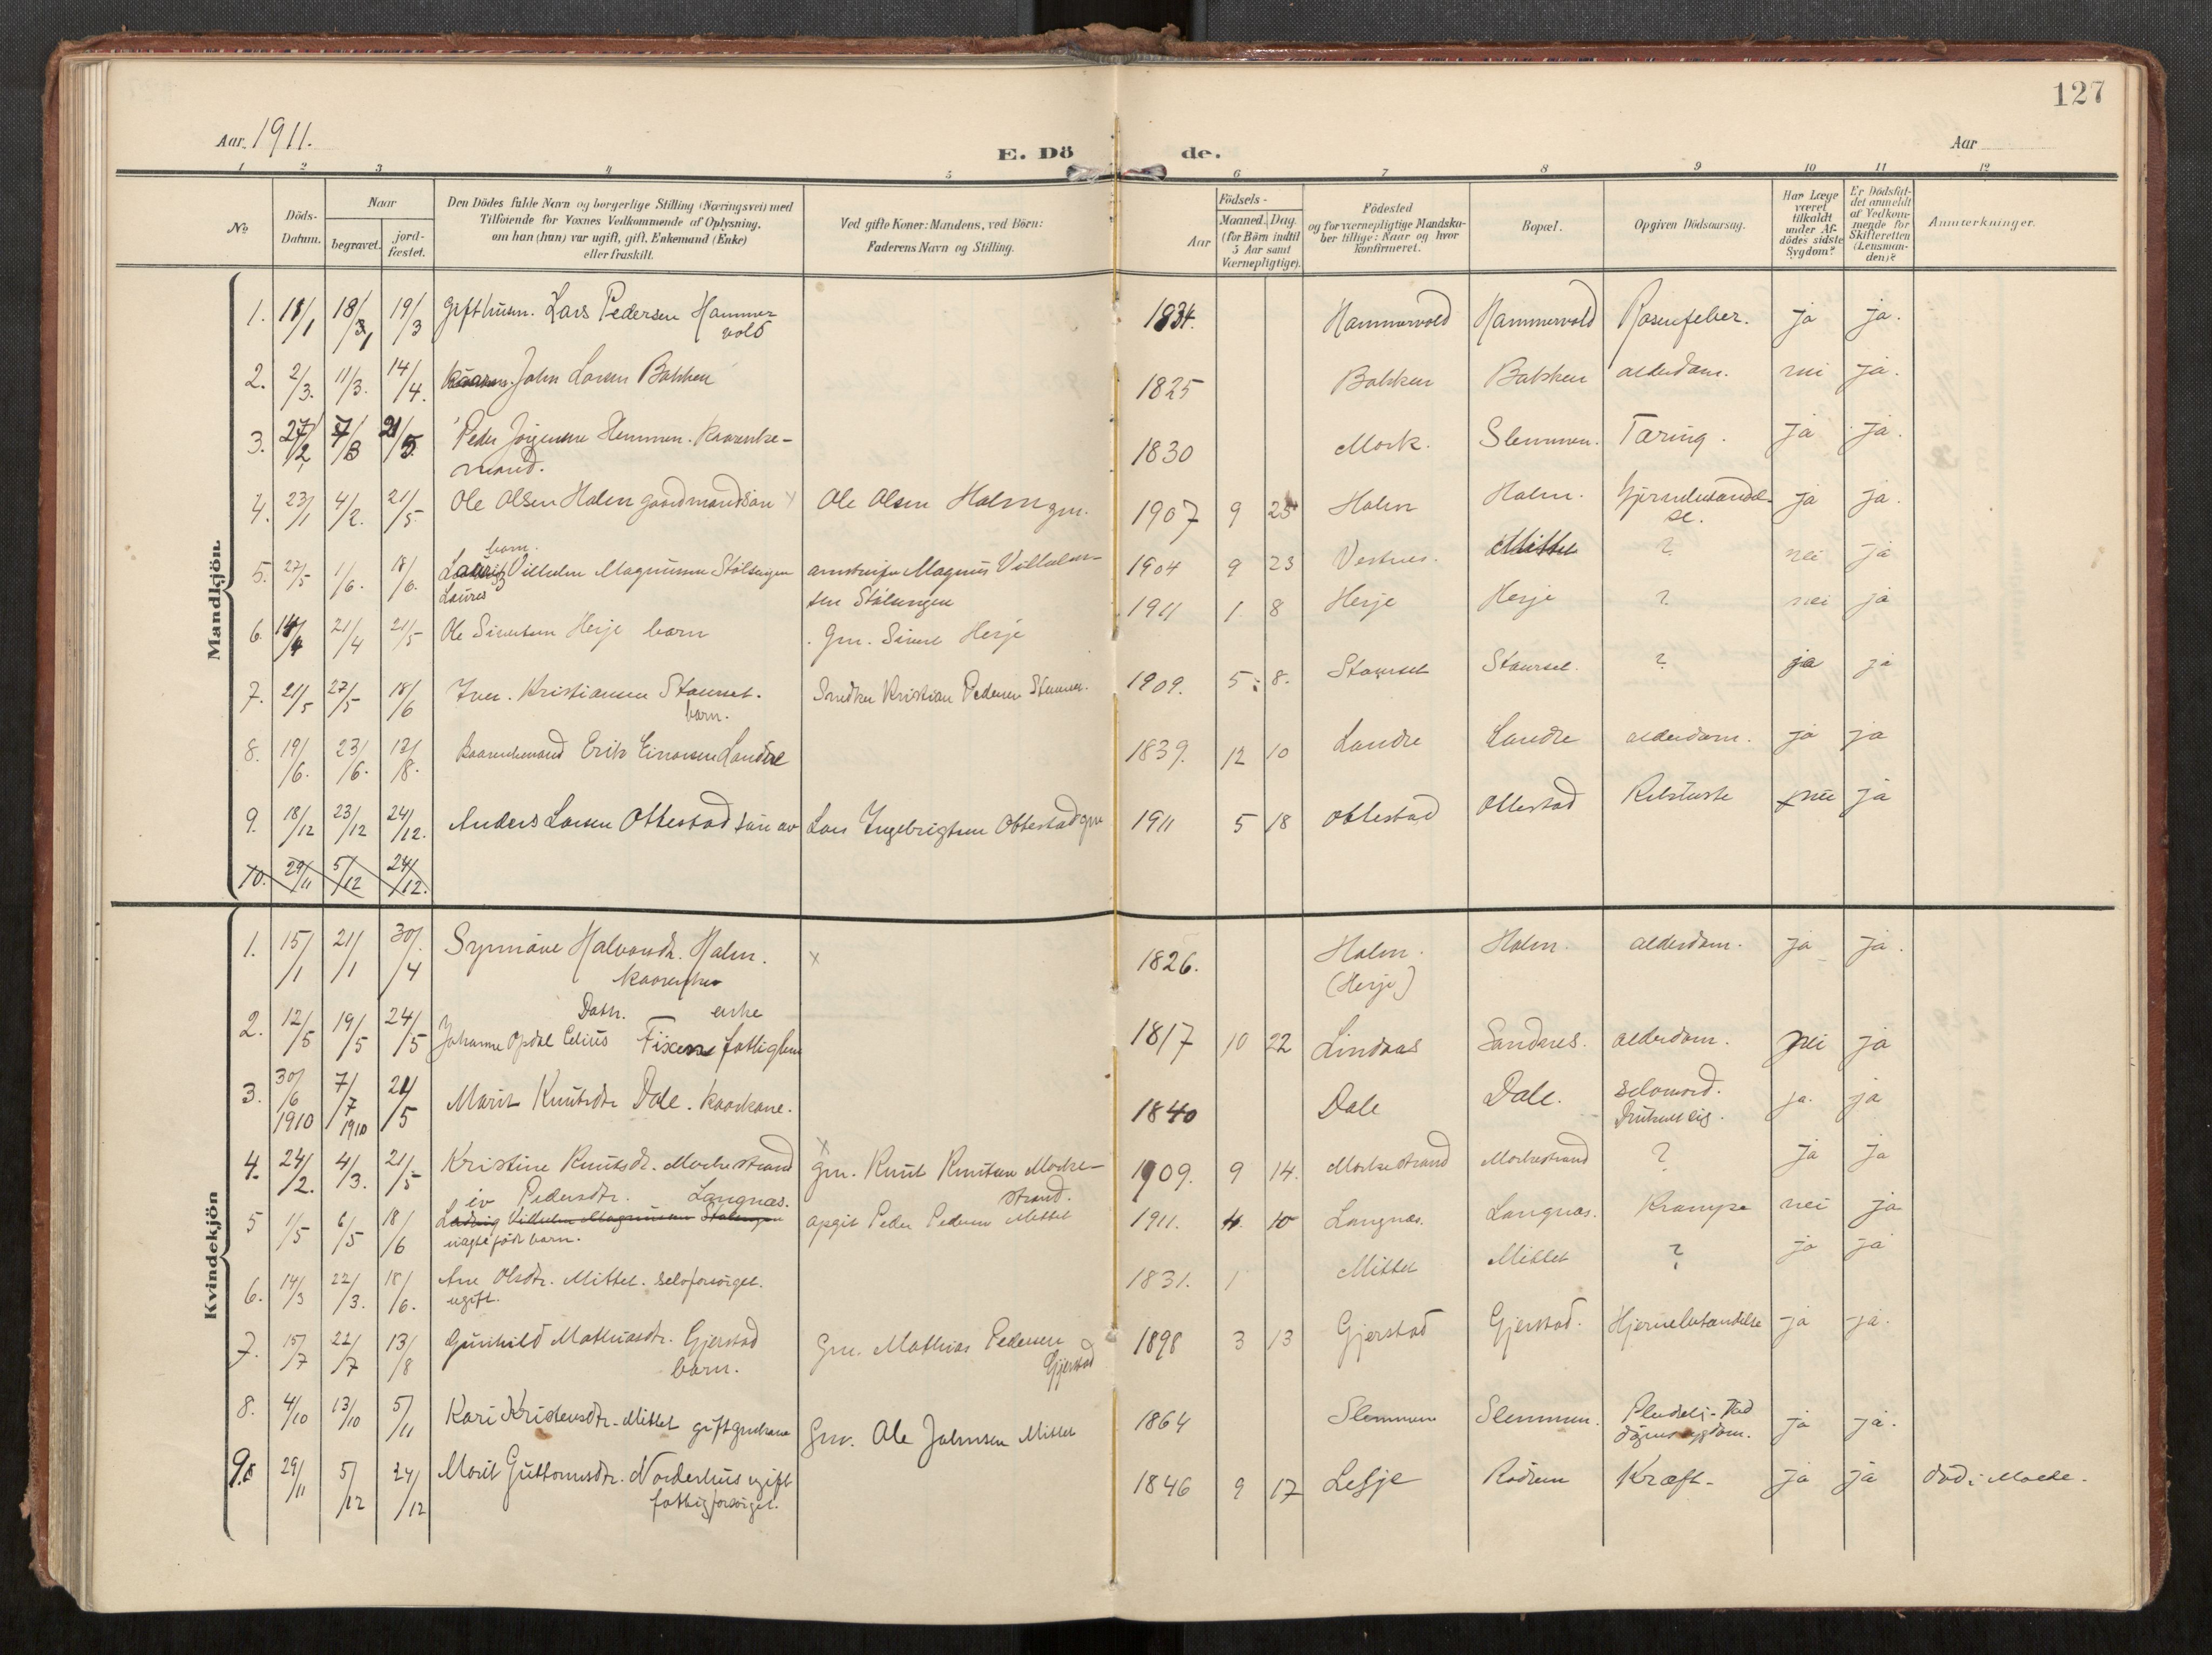 127
Aar 1911.
E. Dö de.
Aar
1 2 3 4 5 6 7 8 9 10 11 12
No
Döds-Datum.
Naar
begravet.
jord-fæstet.
Den Dödes fulde Navn og borgerlige Stilling (Næringsvei) med
Tilföiende for Voxnes Vedkommende af Oplysning,
om han (hun) var ugift, gift, Enkemand (Enke)
eller fraskilt.
Ved gifte Koner: Mandens, ved Börn:
Faderens Navn og Stilling.
Födsels-
Aar
Maaned. Dag.
(for Börn indtil
5 Aar samt
Værnepligtige).
Födested
og for værnepligtige Mandska-
ber tillige: Naar og hvor
konfirmeret.
Bopæl.
Opgiven Dödsaarsag.
Har Læge
været
tilkaldt
under Af-
dödes sidste
Sygdom?
Er Dödsfal-
det anmeldt
af Vedkom-
mende for
Skifteretten
(Lensman-
den)?
Anmærkninger.
Mandkjön.
1. 18/1 18/1 19/3 Gift husm. Lars Pedersen Hammervold 1834. Hammervold Hammervold Rosenfeber. ja ja.
2. 2/3. 11/3. 14/4. John Larsen Bakken 1825 Bakken Bakken alderdom. nei ja.
3. 27/2 7/3 21/5. Peder Jörgensen Hemmen. Kaarenke-
mand. 1830 Mork. Slemmen. Tæring. ja ja.
4. 23/1 4/2. 21/5. Ole Olsen Holm gaardmandssön Ole Olsen Holm gm. 1907 9 Holm Holm. Hjernebetændel-
se. ja ja.
5. 27/5 1/6. 18/6. barn.
Vilhelm Magnussen Stölsengen Magnus Vilhelm- 1904 9 23 Vestnes. ? nei ja
Laures
sen Stölsengen
6. 14/4 21/4 21/5 Ole Sivertsen Herje barn Gm. Sivert Herje 1911 1 8 Herje Herje ? nei ja
7. 21/5 27/5 18/6 Iver. Kristiansen Staurset.
barn. Snedker Kristian Pedersen 1909. 5 8. Staurset Staurset. ? ja ja
8. 19/6. 23/6. 13/8. Kaarenkemand Erik Einarsen Landre 1839. 12 10 Landre Landre alderdom. ja ja
9. 18/12 23/12 24/12. Anders Larsen Ottestad sön av Lars Ingebrigtsen Ottestad gm 1911 5 18 Ottestad Ottestad nei ja
10. 29/11 5/12 24/12.
Kvindekjön
1. 15/1 21/1 30/4 Synnöve Halvorsdtr. Holm.
kaarenke 1826. Holm.
(Herje) Holm. alderdom. ja ja.
2. 12/5 19/5 24/5 Datr. enke
Johanne Opdal Celius fattiglem 1817 10 22 Lindaas Sandnes. alderdom. nei ja
3. 30/6 1910 7/7 1910 21/5 Marit Knutsdtr Dale. kaarkone. 1840 Dale Dale. selvmord.
ja. ja
4. 24/2. 4/3. 21/5 Kristine Knutsdtr. Morkestrand gm. Knut Knutsen Morke-
strand. 1909. 9 14. Morkestrand Morkestrand ? ja ja
5 1/5 6/5 18/6 Pedersdtr. Langnas.
Vilhelm Magnussen Stölsengen
uægte födt barn. opgit Peder Pedersen Mittet 1911. 4. 10 Langnas. Langnas. Krampe nei ja
6. 14/3 22/3. 18/6. Ane Olsdtr. Mittet. selvforsörget.
ugift. 1831. 1 Mittet Mittet ? ja ja
7. 15/7 22/7 13/8 Gunhild Mathiasdtr. Gjerstad
barn. Gm. Mathias Pedersen
Gjerstad 1898 3 13 Gjerstad Gjerstad. Hjernebetændelse ja ja.
8. 4/10 13/10 5/11 Kari Kristensdtr. Mittet gift gmkone Gm. Ole Johnsen Mittet 1864 Slemmen Slemmen. ja ja.
9. 29/11 5/12 24/12 Marit Guttormsdtr. Norderhus ugift
fattigforsörget. 1846 9 17 Lesje Rödven Kræft. ja ja död i Molde.